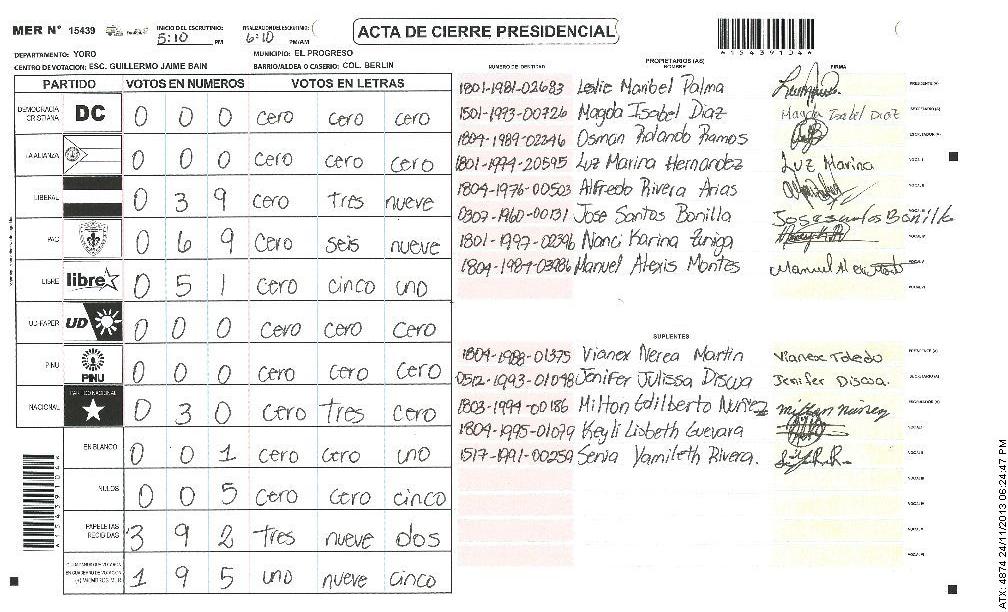 MER N° 15439 INICIO DEL ESCRUTINIO: 5:10 PM FINALIZACION DEL ESCRUTINIO: 6:10 PM/AM ACTA DE CIERRE PRESIDENCIAL
DEPARTAMENTO: YORO MUNICIPIO: EL PROGRESO
CENTRO DE VOTACION: ESC. GUILLERMO JAIME BAIN BARRIO/ALDEA O CASERIO: COL. BERLIN
PARTIDO VOTOS EN NUMEROS VOTOS EN LETRAS
DEMOCRACIA CRISTIANA DC 0 0 0 cero cero cero
LA ALIANZA 0 0 0 cero cero cero
LIBERAL 0 3 9 cero tres nueve
PAC 0 6 9 cero seis nueve
LIBRE libre 0 5 1 cero cinco uno
UD-FAPER UD 0 0 0 cero cero cero
PINU PINU 0 0 0 cero cero cero
NACIONAL PARTIDO NACIONAL 0 3 0 cero tres cero
EN BLANCO 0 0 1 cero cero uno
NULOS 0 0 5 cero cero cinco
PAPELETAS RECIBIDAS 3 9 2 tres nueve dos
1 9 5 uno nueve cinco
PROPIETARIOS (AS)
NUMERO DE IDENTIDAD NOMBRE FIRMA
1801-1981-02683 Leslie Maribel Palma PRESIDENTE (A)
1501-1993-00726 Magda Isabel Diaz Magda Isabel Diaz SECRETARIO (A)
1804-1989-02246 Osman Rolando Ramos ESCRUTADOR (A)
1801-1974-20595 Luz Marina Hernandez Luz Marina VOCAL I
1804-1976-00503 Alfredo Rivera Arias VOCAL II
0307-1960-00131 Jose Santos Bonilla Jose santos Bonilla
1801-1997-02396 Nanci Karina Zuniga
1804-1984-03986 Manuel Alexis Montes Manuel Alexis Montes
SUPLENTES
1804-1988-01375 Vianex Nerea Martin Vianex Toledo PRESIDENTE (A)
0512-1993-01048 Jenifer Julissa Discua Jenifer Discua. SECRETARIO (A)
1803-1994-00186 Milton Edilberto Nuñez Milton Nuñez ESCRUTADOR (A)
1804-1995-01079 Keyli Lisbeth Guevara
1517-1991-00259 Senia Yamileth Rivera.
ATX: 4874 24/11/2013 06:24:47 PM